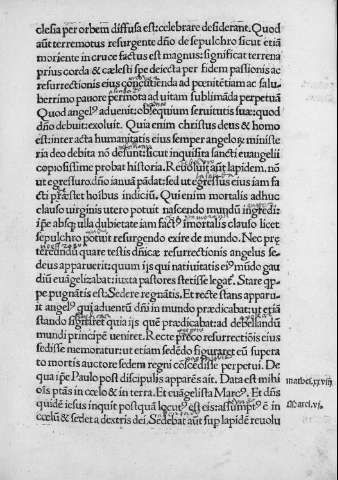 clesia per orbem diffusa est: celebrare desiderant. Quod
aūt terremotus resurgente dño de sepulchro sicut etiā
moriente in cruce factus est magnus: significat terrena
prius corda & cælesti spe deiecta per fidem passionis ac
resurrectionis eius concutienda ad pœnitētiam ac salu-
berrimo pauore permota ad uitam sublimāda perpetuā
Quod angelꝰ aduenit: obsequium seruitutis suæ: quod
dño debuit: exoluit. Quia enim christus deus & homo
est: inter acta humanitatis eius semper angeloꝝ ministe
ria deo debita nō desunt: sicut inquisita sancti euangelii
copiosissime probat historia. Reuoluit aūt lapidem. nō
ut egressuro dño ianuā pādat: sed ut egressus eius iam fa
cti præstet hoibus indiciū. Qui enim mortalis adhuc
clauso uirginis utero potuit nascendo mundū ingredi:
ipe absqꝫ ulla dubietate iam factꝰ īmortalis clauso licet
sepulchro potuit resurgendo exire de mundo. Nec præ
tereundū quare testis dñicæ resurrectionis angelus se-
dens apparuerit: quum iis qui natiuitatē eiꝰ mūdo gau
diū euāgelizabat: iuxta pastores stetisse legatᷓ. Stare qp
pe pugnātis est: Sedere regnātis. Et recte stans apparu-
it angelꝰ qui aduentū dñi in mundo prædicabat: ut etiā
stando signaret quia iis quē prædicabat: ad debellandū
mundi principē ueniret. Recte præco resurrectiōis eius
sedisse memoratur: ut etiam sedēdo figuraret eū supera
to mortis auctore sedem regni cōscēdisse perpetui. De
qua ipe Paulo post discipulis apparēs ait. Data est mihi
oīs ptās in cœlo & in terra. Et euāgelista Marcꝰ. Et dñs
quidē iesus inquit postquā locutꝰ est eis: assumptꝰ ē in
cœlū & sedet a dextris dei. Sedebat aūt sup lapidē reuolu
mathei.xxviij
Marci.vj.